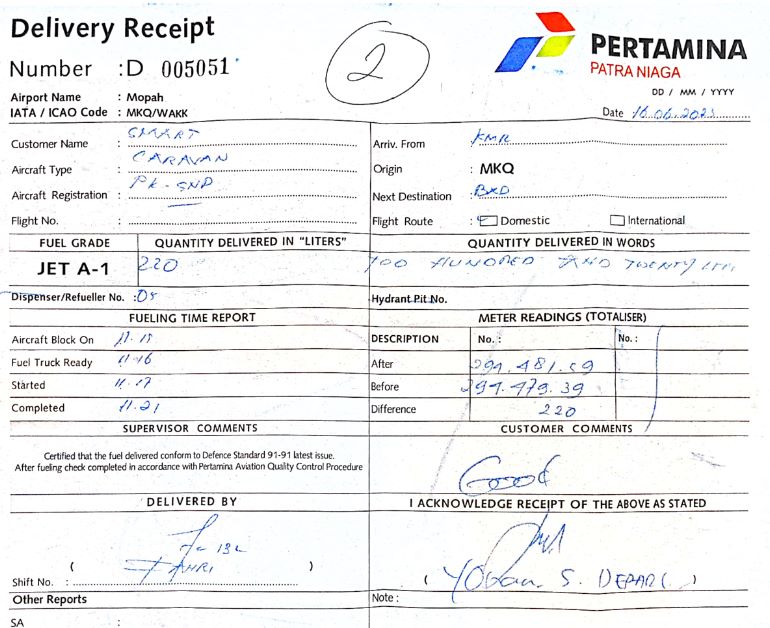 Delivery Receipt
Number : D 005051
2
PERTAMINA
PATRA NIAGA
Airport Name : Mopah
IATA / ICAO Code : MKQ/WAKK
DD / MM / YYYY
Date 16.06.2023
Customer Name : SMART
Aircraft Type : CARAVAN
Aircraft Registration : PK-SNP
Flight No. :
Arriv. From KMR
Origin : MKQ
Next Destination : BXD
Flight Route : Domestic International
FUEL GRADE QUANTITY DELIVERED IN "LITERS" QUANTITY DELIVERED IN WORDS
JET A-1 220 HUNDRED AND TWENTY
Dispenser/Refueller No. : 05 Hydrant Pit No.
FUELING TIME REPORT METER READINGS (TOTALISER)
Aircraft Block On 11.15 DESCRIPTION No. : No. :
Fuel Truck Ready 11.16 After
Started 11.17 Before
Completed 11.21 Difference 220
SUPERVISOR COMMENTS CUSTOMER COMMENTS
Certified that the fuel delivered conform to Defence Standard 91-91 latest issue.
After fueling check completed in accordance with Pertamina Aviation Quality Control Procedure
Good
DELIVERED BY I ACKNOWLEDGE RECEIPT OF THE ABOVE AS STATED
( FAHRI )
Shift No. :
( S. DEPARI )
Other Reports Note :
SA :